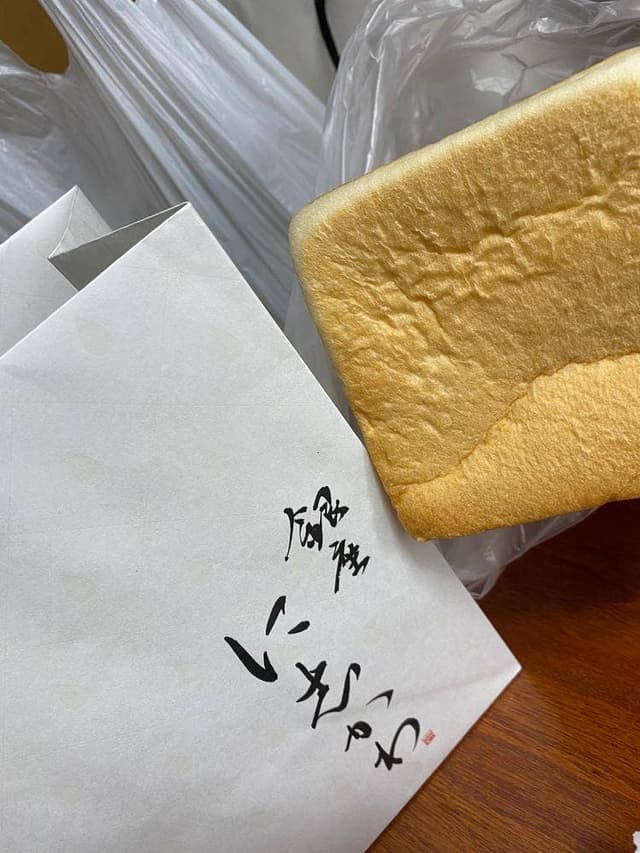 銀座
にしかわ